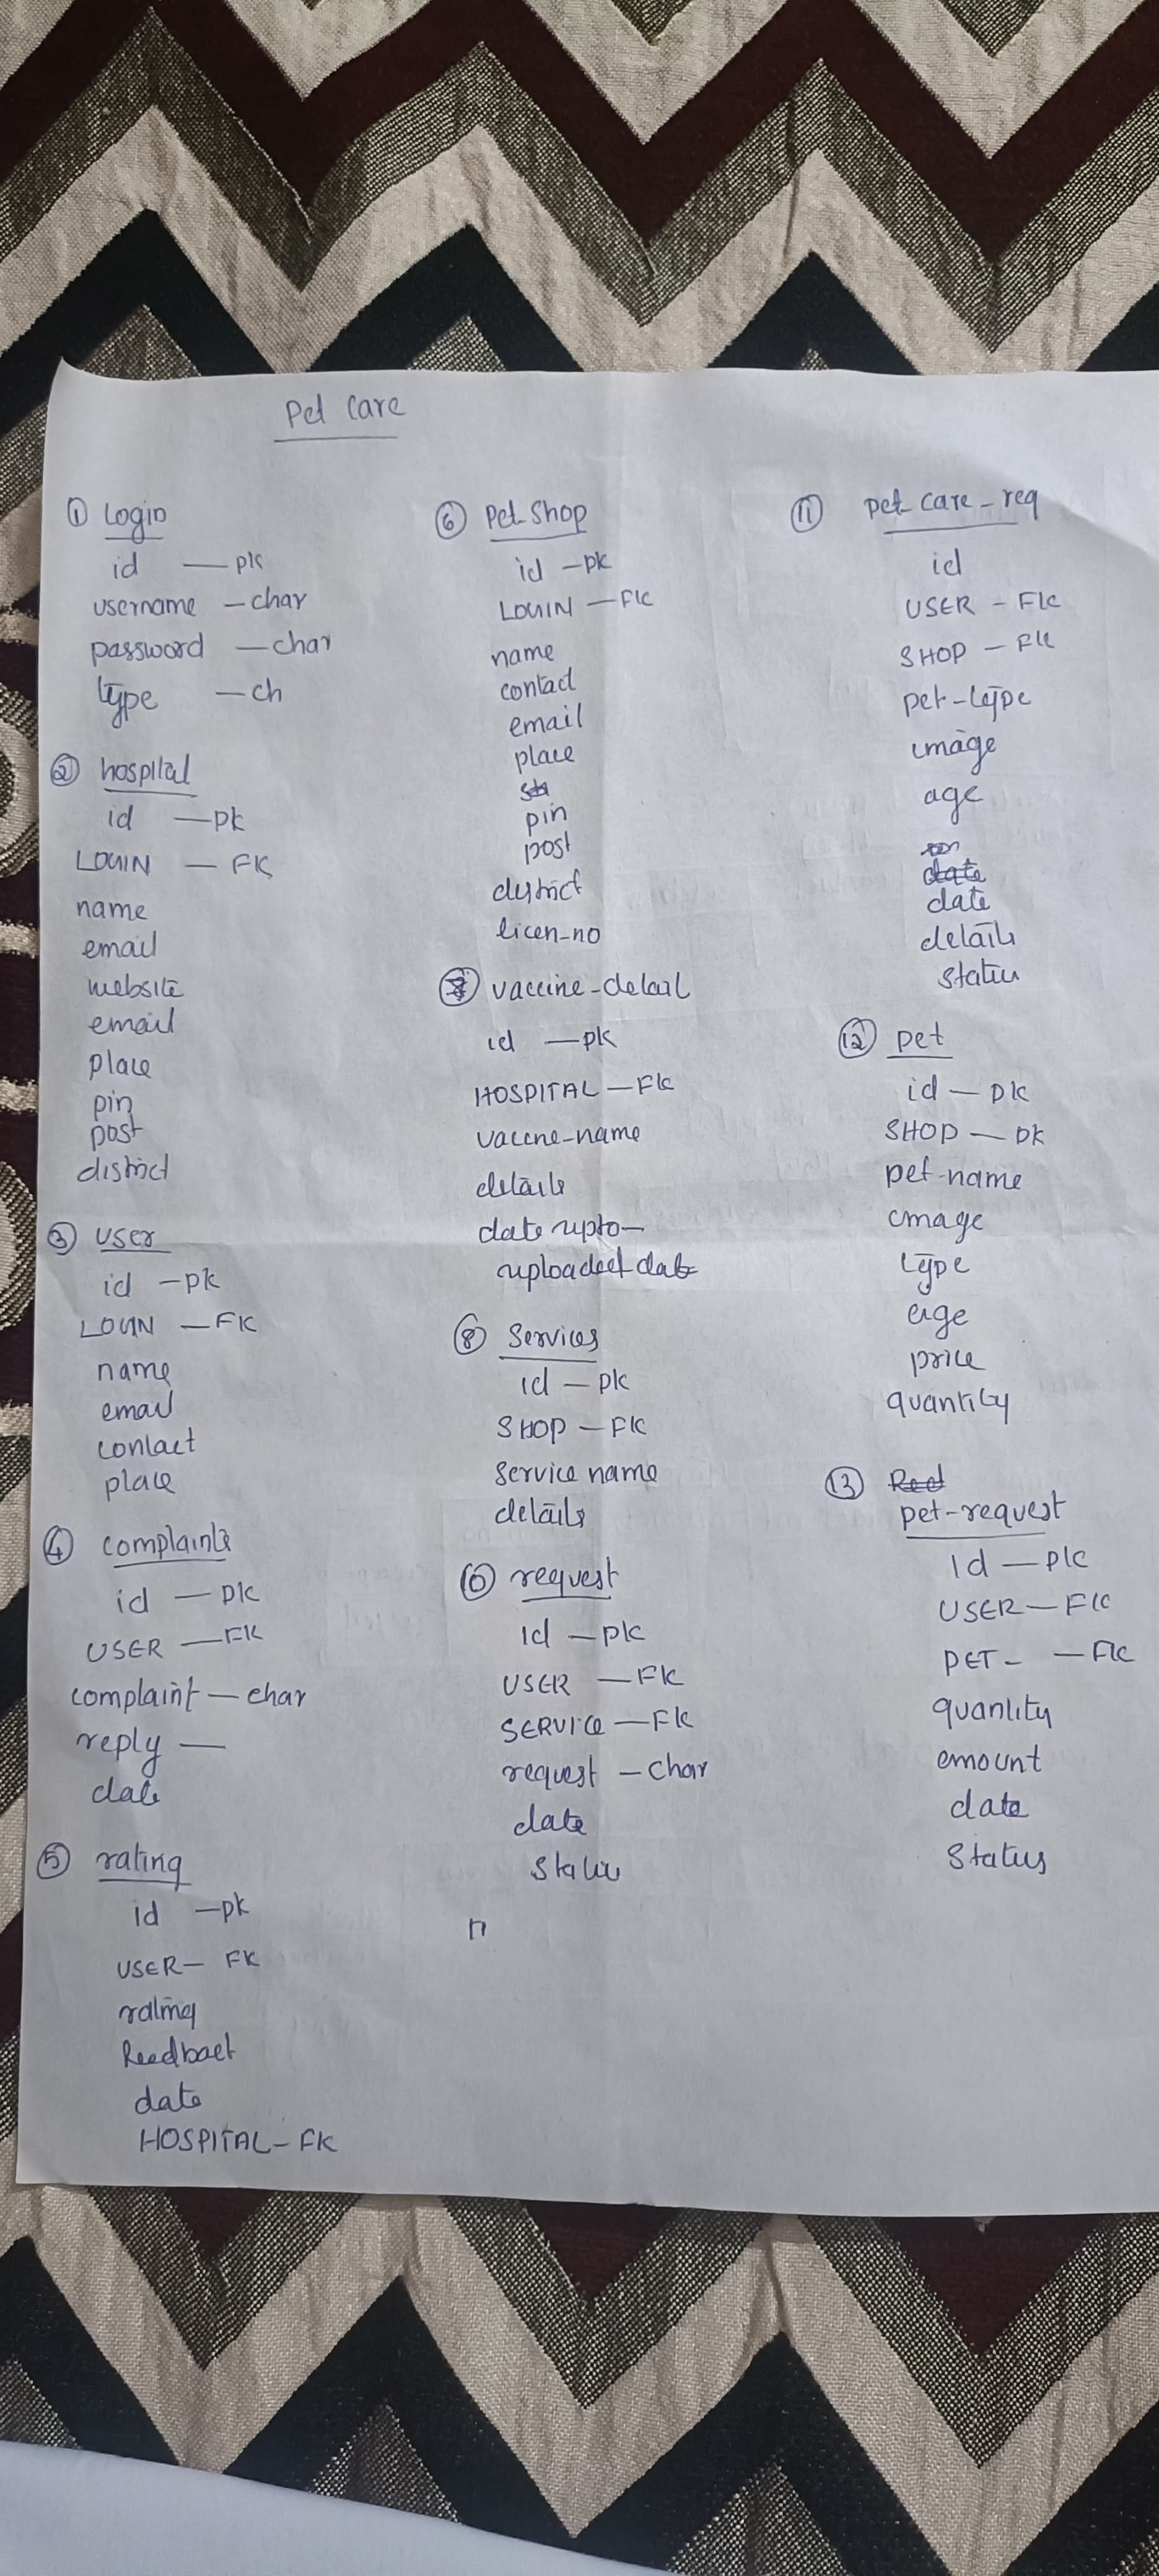 Pet Care
① Login
id — pk
username – char
password — char
type — ch
② hospital
id — pk
LOGIN — FK
name
email
website
email
place
pin
post
district
③ user
id – pk
LOGIN — FK
name
email
contact
place
④ complaints
id — pk
USER — FK
complaint — char
reply —
date
⑤ rating
id — pk
USER – FK
rating
feedback
date
HOSPITAL – FK
⑥ Pet Shop
id – pk
LOGIN — FK
name
contact
email
place
pin
post
district
licen-no
⑦ vaccine-detail
id — pk
HOSPITAL — FK
vaccne-name
details
date upto —
uploaded date
⑧ Services
id — pk
SHOP — FK
Service name
details
⑩ request
id — pk
USER — FK
SERVICE — FK
request – char
date
status
⑪ pet care-req
id
USER – FK
SHOP – FK
pet-type
image
age
date
date
details
status
⑫ pet
id — pk
SHOP — pk
pet-name
image
type
age
price
quantity
⑬ Red
pet-request
id — pk
USER — FK
PET – — FK
quantity
amount
date
Status